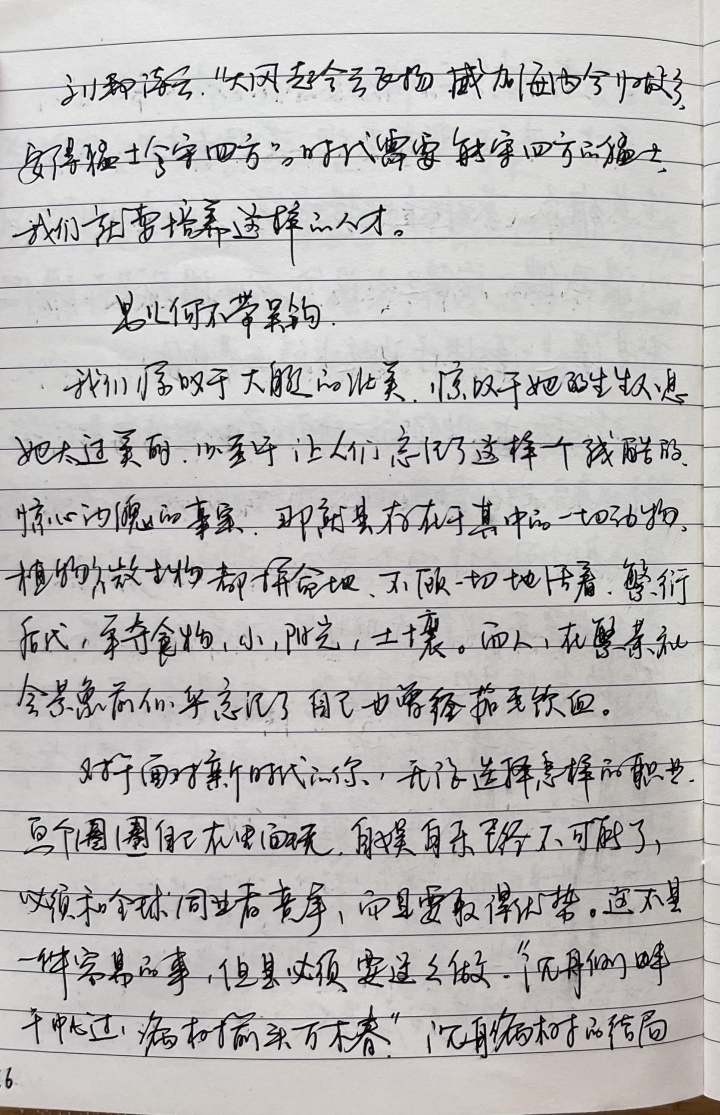 刘邦诗云，“大风起兮云飞扬 威加海内兮归故乡，
安得猛士兮守四方”。时代需要能守四方的猛士，
我们就要培养这样的人才。
男儿何不带吴钩．
我们惊叹于大自然的壮美，惊叹于她的生生不息
她太过美丽，以至于让人们忘记了这样一个残酷的、
惊心动魄的事实，那就是存在于其中的一切动物、
植物、微生物都拼命地、不顾一切地活着、繁衍
后代，争夺食物，水，阳光，土壤。而人，在繁荣社
会景象前似乎忘记了自己也曾经茹毛饮血。
对于面对新时代的你，无论选择怎样的职业，
画个圈圈自己在里面玩，自娱自乐已经不可能了，
必须和全球同业者竞争，而且要取得优势。这不是
一件容易的事，但是必须要这么做．“沉舟侧畔
千帆过，病树前头万木春”沉舟病树的结局
6